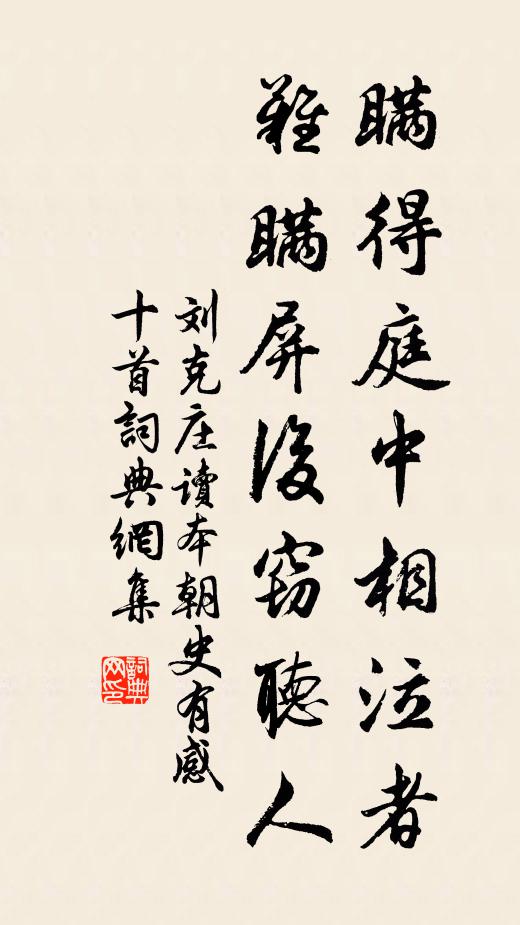 瞞得庭中相泣者
難瞞屏後竊聽人
刘克庄讀本朝史有感
十首詞典網集
詞典网印